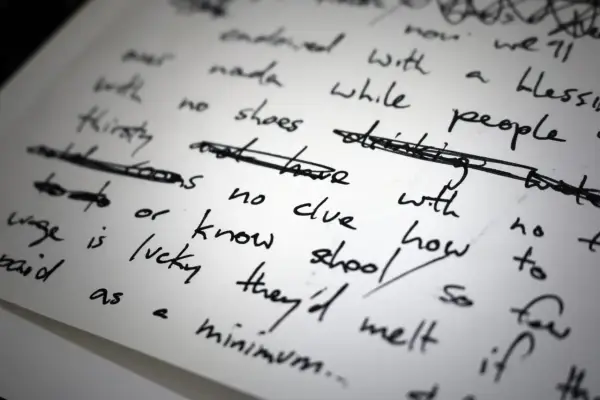 now we'll
endowed with a blessi
over nada while people
with no shoes drinking
thirsty not have with no t
s no clue how to
or know shool/ so few
wage is lucky they'd melt if the
paid as a minimum...